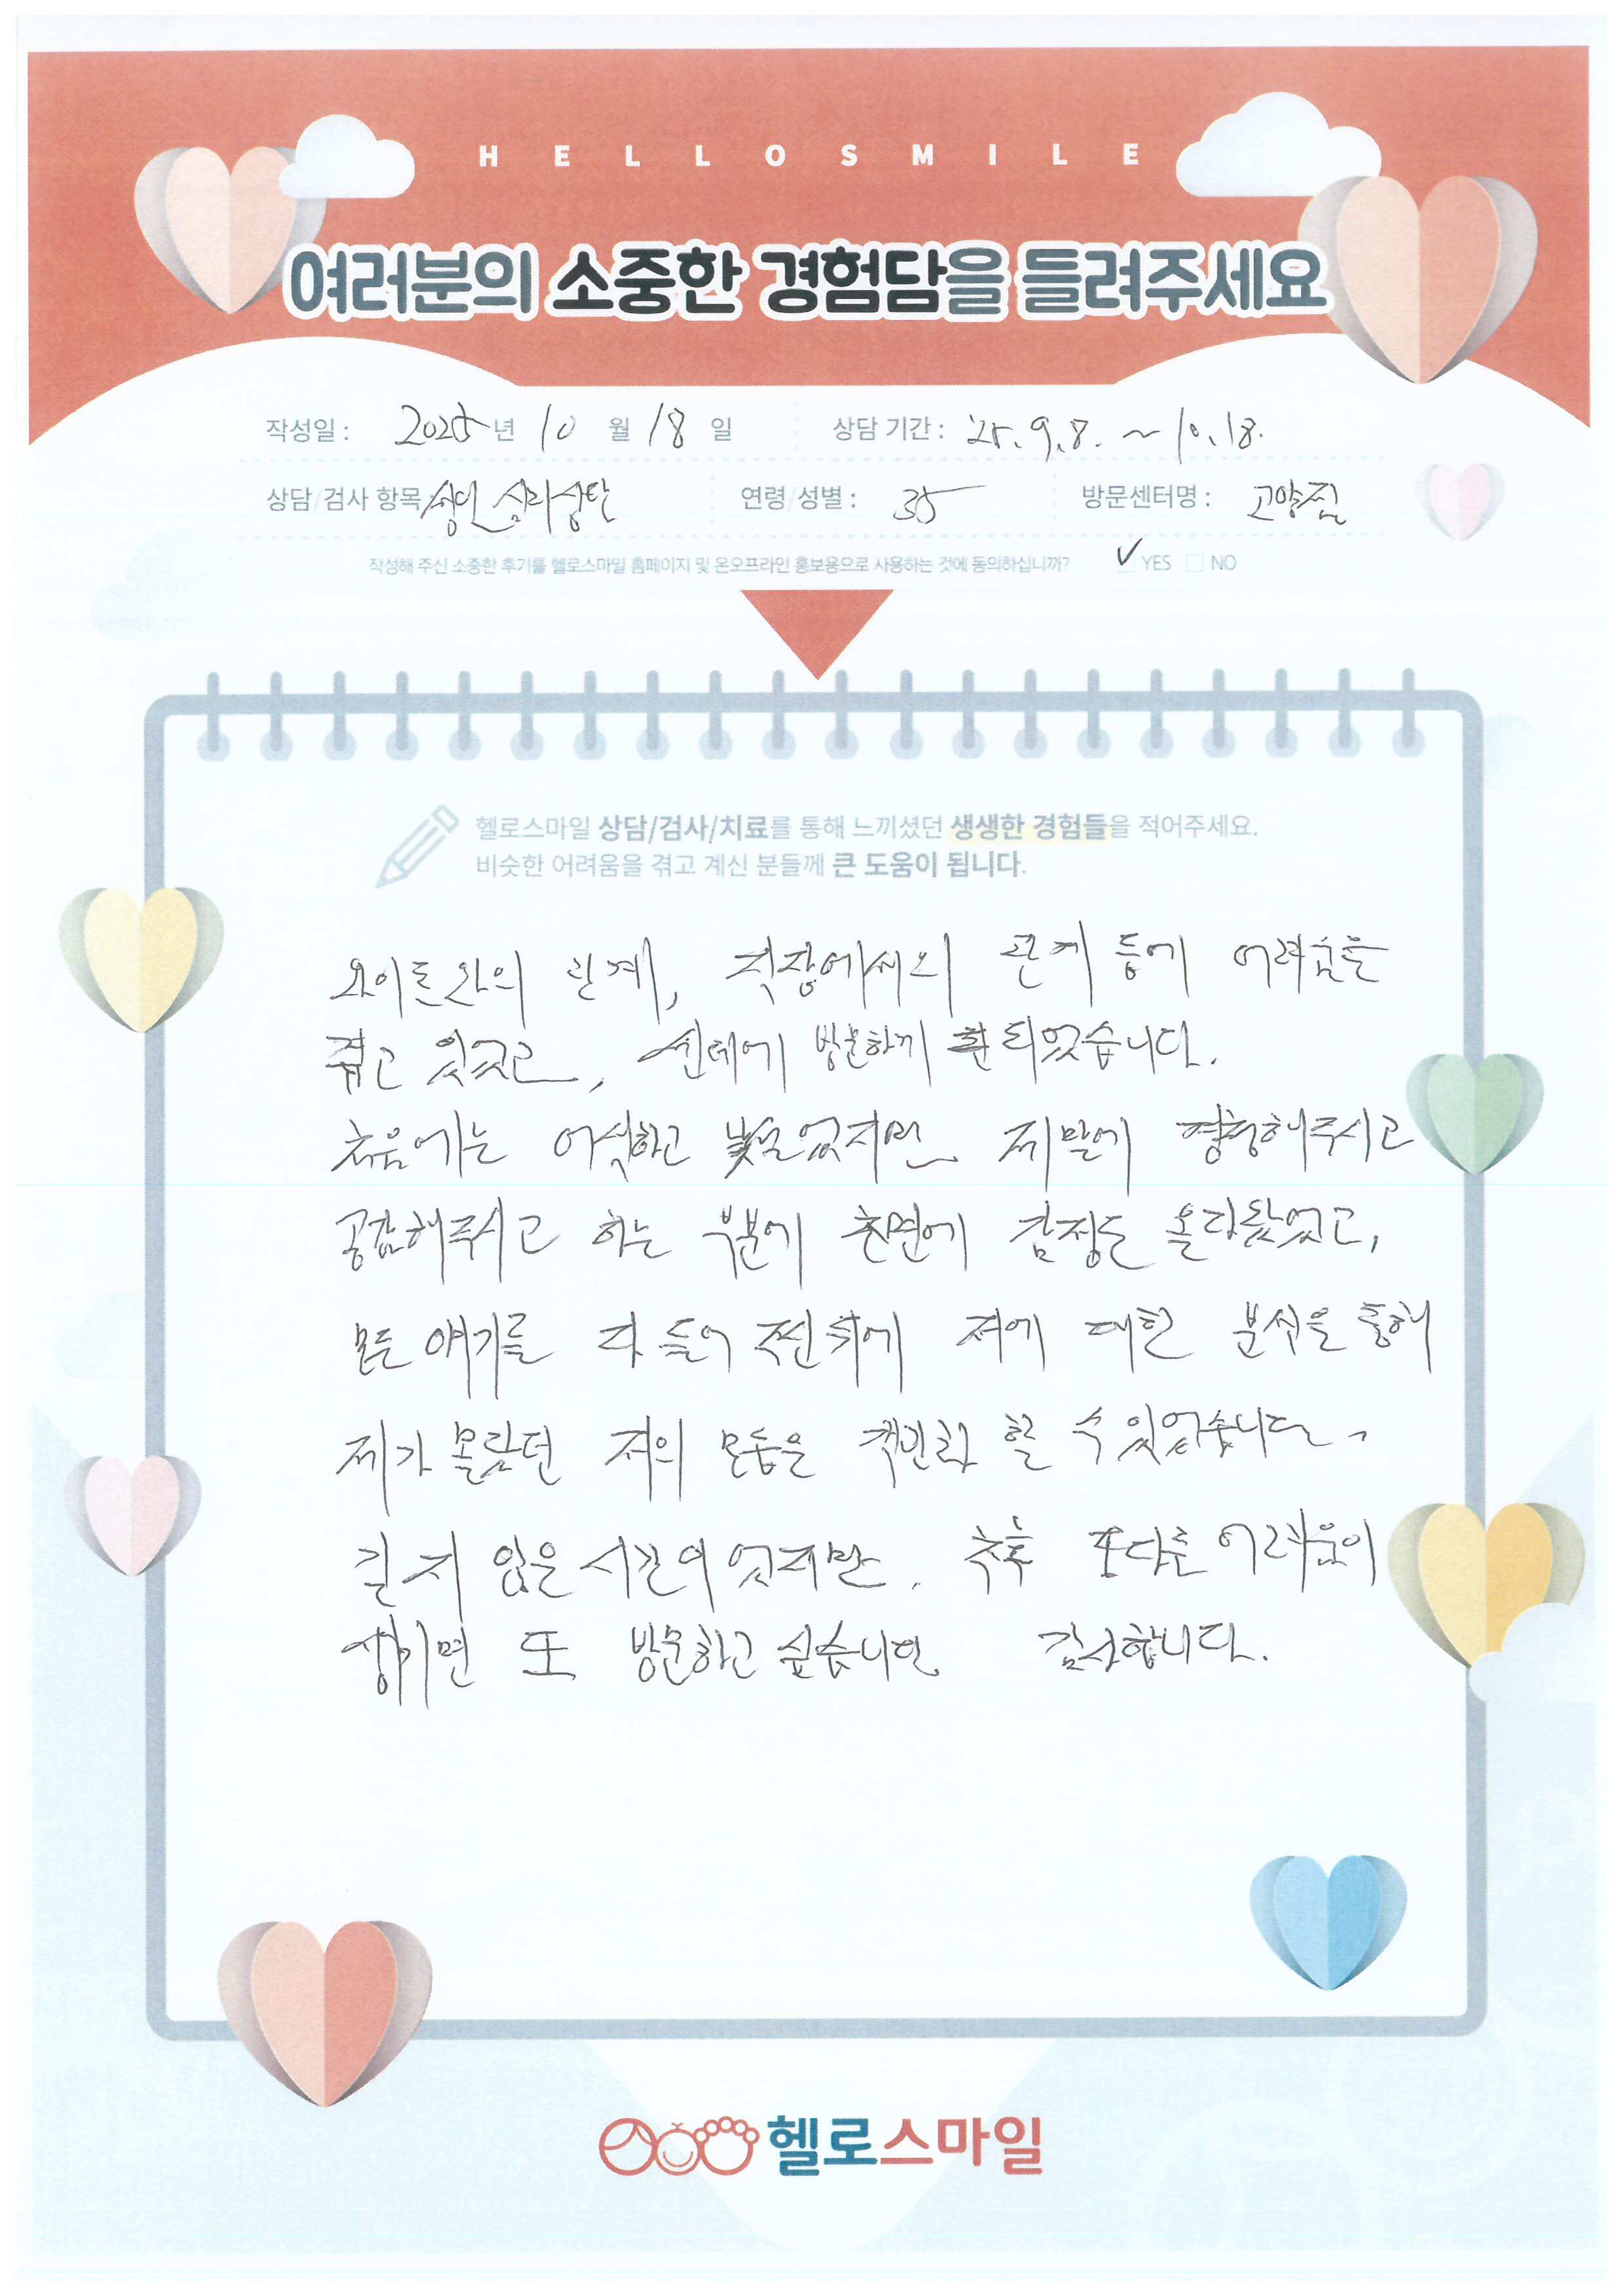 HELLOSMILE
여러분의 소중한 경험담을 들려주세요
작성일 : 2025년 10월 18일 상담 기간 : '25. 9. 8. ~ 10. 18.
상담/검사 항목 성인 심리상담 연령/성별 : 35 방문센터명 : 고양점
작성해 주신 소중한 후기를 헬로스마일 홈페이지 및 온오프라인 홍보용으로 사용하는 것에 동의하십니까? ✓ YES NO
헬로스마일 상담/검사/치료를 통해 느끼셨던 생생한 경험들을 적어주세요.
비슷한 어려움을 겪고 계신 분들께 큰 도움이 됩니다.
와이프와의 관계, 직장에서의 관계 등에 어려움을
겪고 있었고, 센터에 방문하게 되었습니다.
처음에는 어색하고 낯설었지만 제 말에 경청해주시고
공감해주시고 하는 부분에 한편에 감정도 올라왔었고,
모든 얘기를 다 들어 주신 뒤에 저에 대한 분석을 통해
제가 몰랐던 저의 모습을 객관화 할 수 있었습니다.
길지 않은 시간이었지만, 추후 또다른 어려움이
생기면 또 방문하고 싶습니다 감사합니다.
헬로스마일